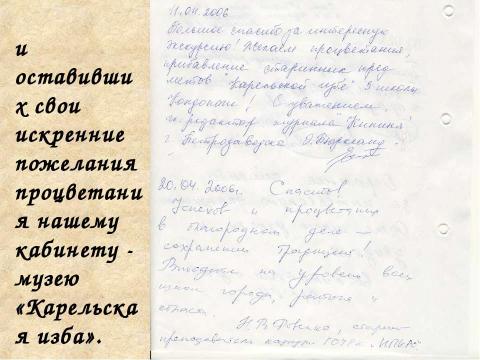 и
оставивши
х свои
искренние
пожелания
процветани
я нашему
кабинету -
музею
«Карельска
я изба».
11.04.2006
Большое спасибо за интересную
экскурсию. Желаем процветания,
прибавление старинных пред
метов "Карельской избе" 3 школы
Кондопоги! С уважением,
гл. редактор журнала "Кипиня"
г. Петрозаводска
20.04.2006г. Спасибо
Успехов и процветания
в благородном деле —
сохранении традиций!
на уровень всех
школ города, района и
Н.В.
преподаватель